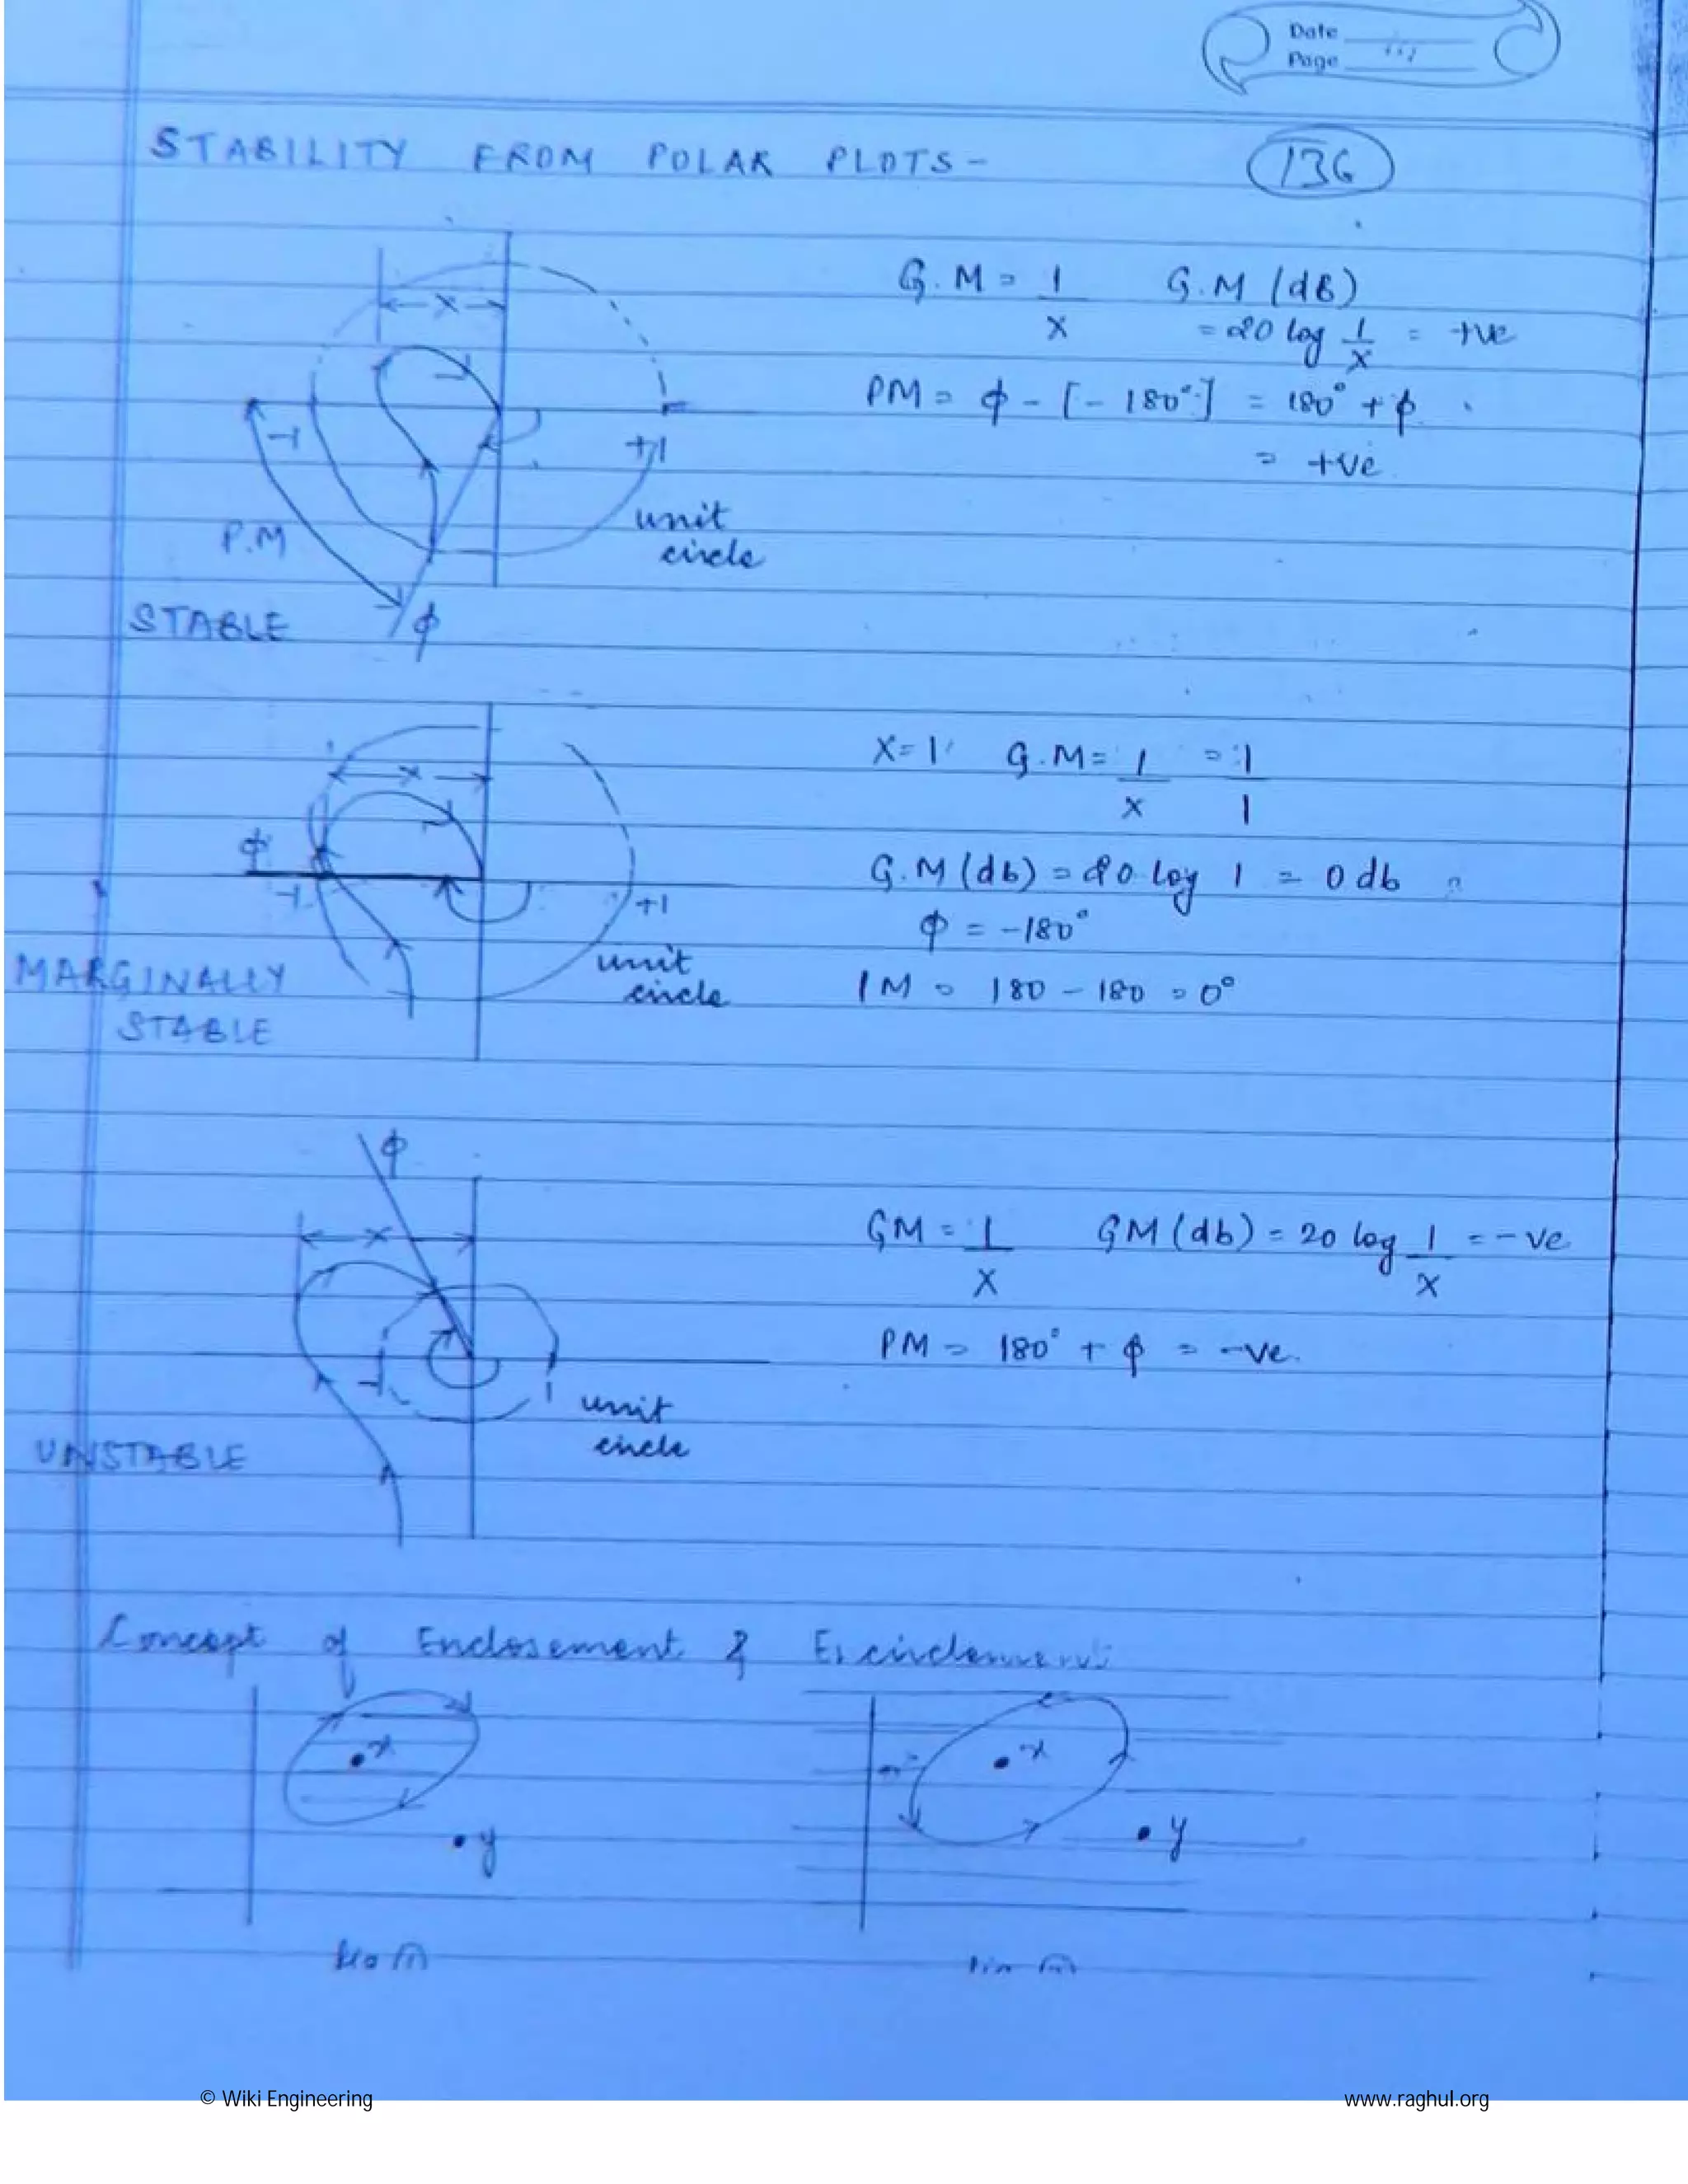 Date
Page
STABILITY FROM POLAR PLOTS -
136
x
G.M = 1/x   G.M (dB)
= 20 log 1/x = +ve
PM = ϕ - [-180°] = 180° + ϕ
= +ve
-1
+1
P.M
unit
circle
STABLE
ϕ
x
X = 1   G.M = 1/x = 1/1
ϕ
-1
+1
G.M (db) = 20 log 1 = 0 db
ϕ = -180°
PM = 180 - 180 = 0°
unit
circle
MARGINALLY
STABLE
ϕ
x
GM = 1/X   GM (db) = 20 log 1/X = -ve
PM = 180° + ϕ = -ve.
-1
1
unit
circle
UNSTABLE
Concept of Enclosement &
x
x
y
y
© Wiki Engineering
www.raghul.org